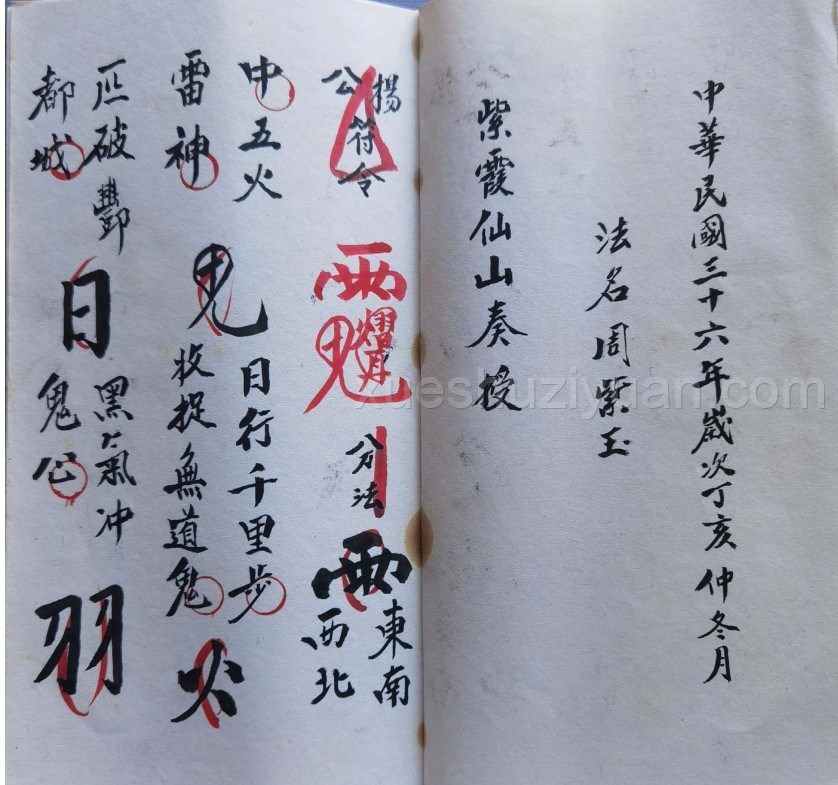 中華民國三十六年歲次丁亥仲冬月
法名周紫玉
紫霞仙山奏授
揚公
符令
雨
法
雨
東南
西北
中五火
雷神
日行千里步
收捉無道鬼
火
破酆
都城
日
黑氣冲
鬼公
羽
xueshuziyuan.com